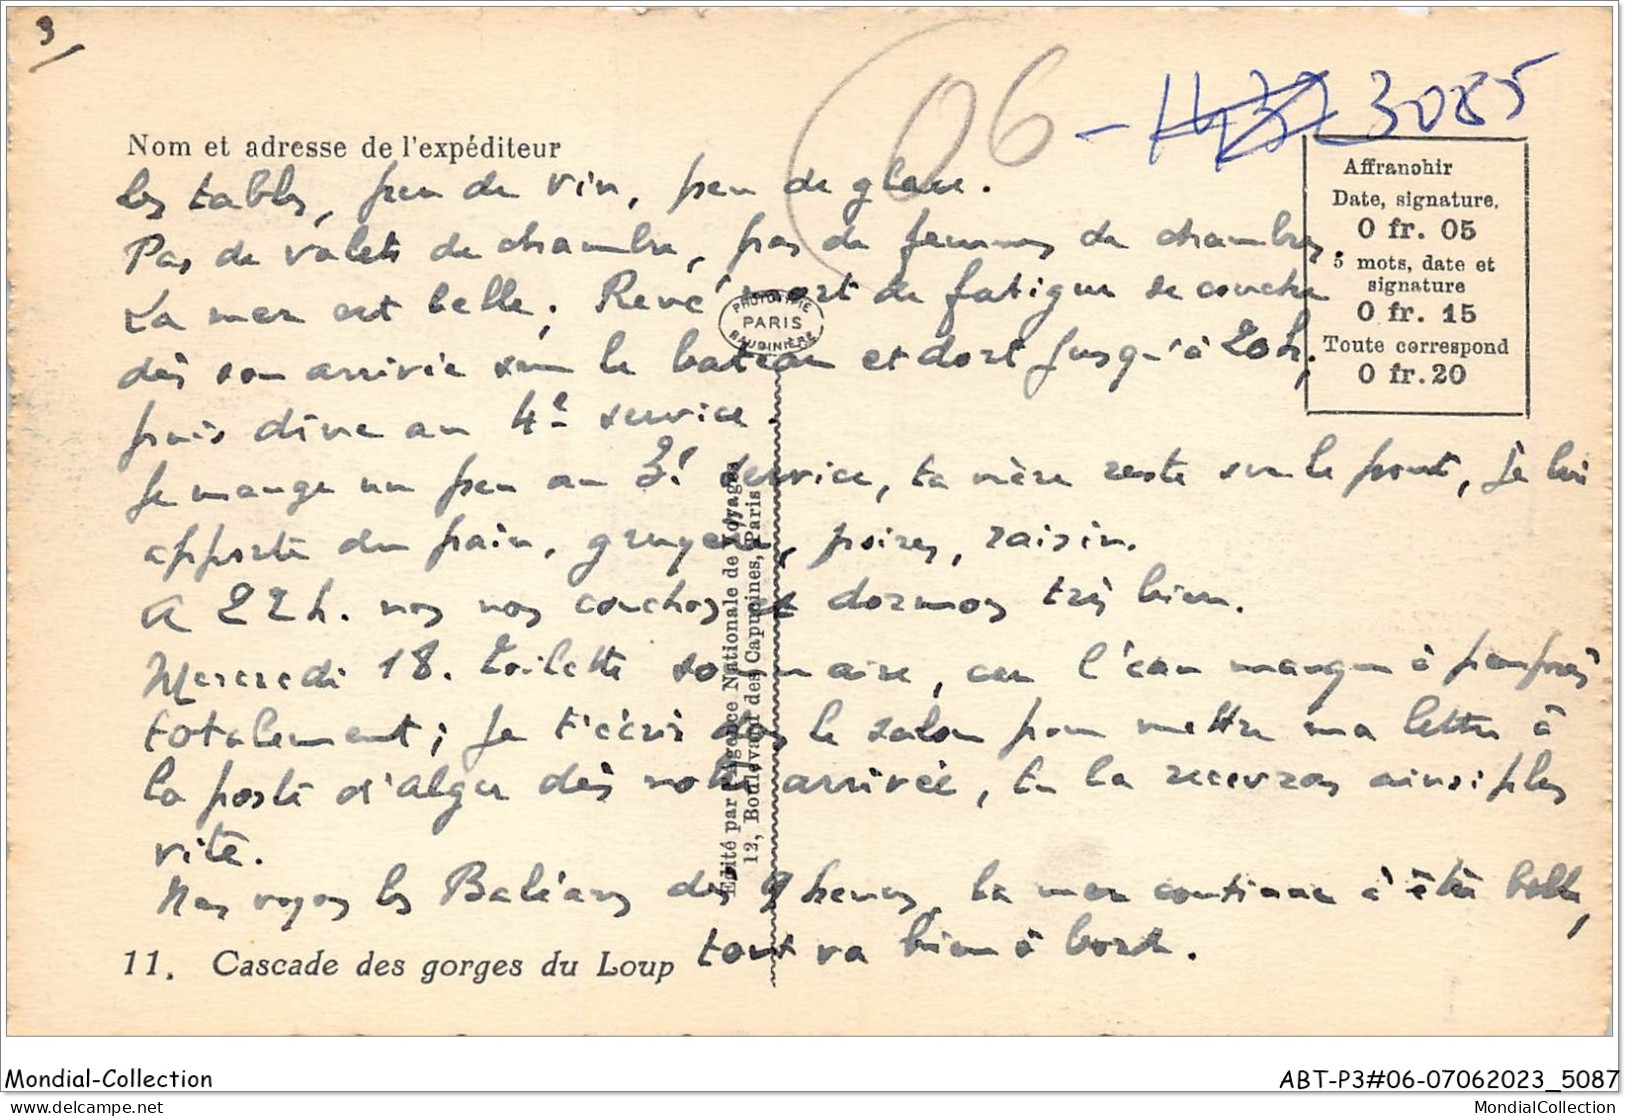 3/
06 - 3085
Nom et adresse de l'expéditeur
les tables, peu de vin, peu de glace.
Pas de valets de chambre, pas de femmes de chambres.
La mer est belle. René mort de fatigue se couche
dès son arrivée sur le bateau et dort jusqu'à 20 h,
puis dîne au 4e service.
Je mange un peu au 3e service, ta mère reste sur le pont, je lui
apporte du pain, gruyère, poires, raisin.
A 22 h. nos nos couchos et dormos très bien.
Mercredi 18. toilette sommaire, car l'eau manque à peu près
totalement; je t'écris ds le salon pour mettre ma lettre à
la poste d'Alger dès notre arrivée, tu la recevras ainsi plus
vite.
Nos voyos les Baléares dès 9 heures, la mer continue à être belle,
tout va bien à bord.
Affranchir
Date, signature.
0 fr. 05
5 mots, date et
signature
0 fr. 15
Toute correspond
0 fr. 20
PHOTOTYPIE
PARIS
BAUDINIÈRE
Edité par l'Agence Nationale de Voyages
12, Boulevard des Capucines, Paris
11. Cascade des gorges du Loup
Mondial-Collection
ABT-P3#06-07062023_5087
delcampe.net
MondialCollection